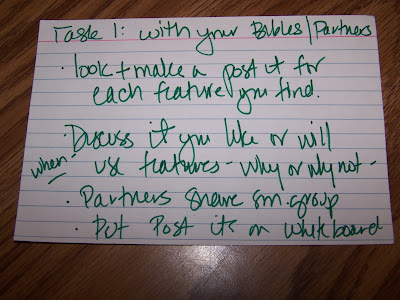 Task 1: with your /Partners
· look + make a post it for
each feature you find.
· Discuss if you like or will
when use features - why or why not -
· Partners share sm. group
· Put Post its on whiteboard